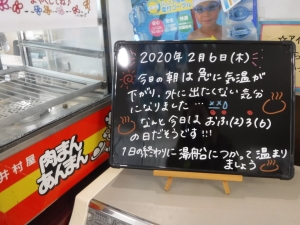 2020年2月6日(木)
今日の朝は急に気温が
下がり、外に出たくない気分
になりました…
なんと今日は お(0)ふ(2)ろ(6)
の日だそうです!!!
1日の終わりに湯船につかって温まり
ましょう
井村屋
肉まん
あんまん